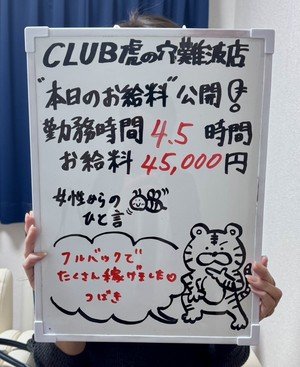 CLUB虎の穴難波店
"本日のお給料"公開!
勤務時間 4.5 時間
お給料 45,000円
女性からの
ひと言
フルバックで
たくさん稼げました♡
つばき